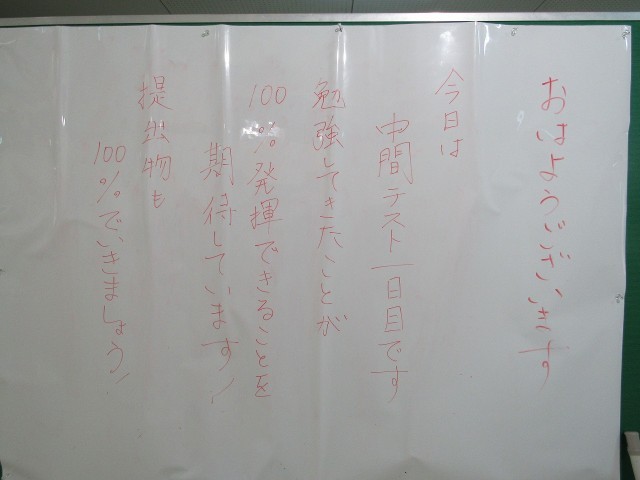 おはようございます
今日は
中間テスト一日目です
勉強してきたことが
100%発揮できることを
期待しています!
提出物も
100%でいきましょう!